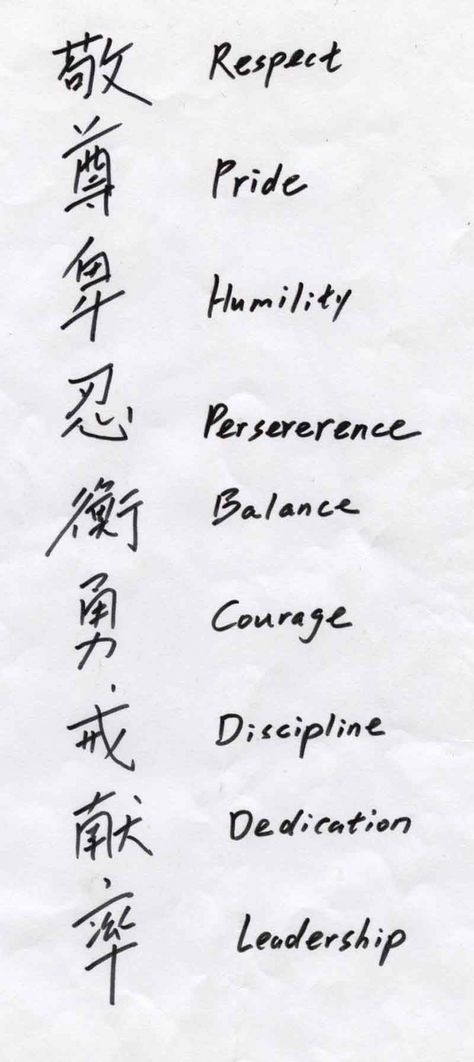 敬 Respect
尊 Pride
卑 Humility
忍 Persererence
衡 Balance
勇 Courage
戒 Discipline
献 Dedication
率 Leadership